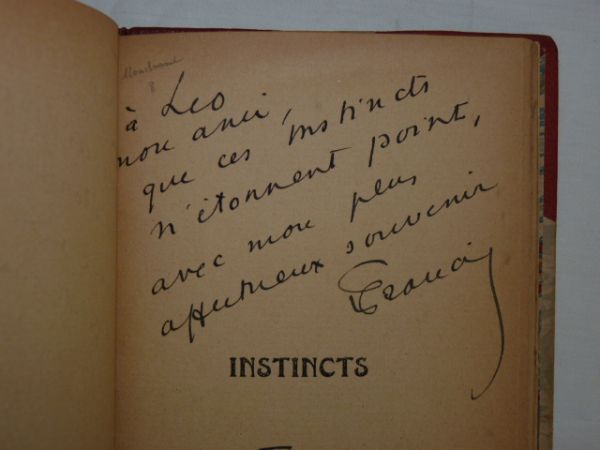 à Leo
mon ami,
que ces instincts
n'étonnent point,
avec mon plus
affectueux souvenir
Francis
INSTINCTS